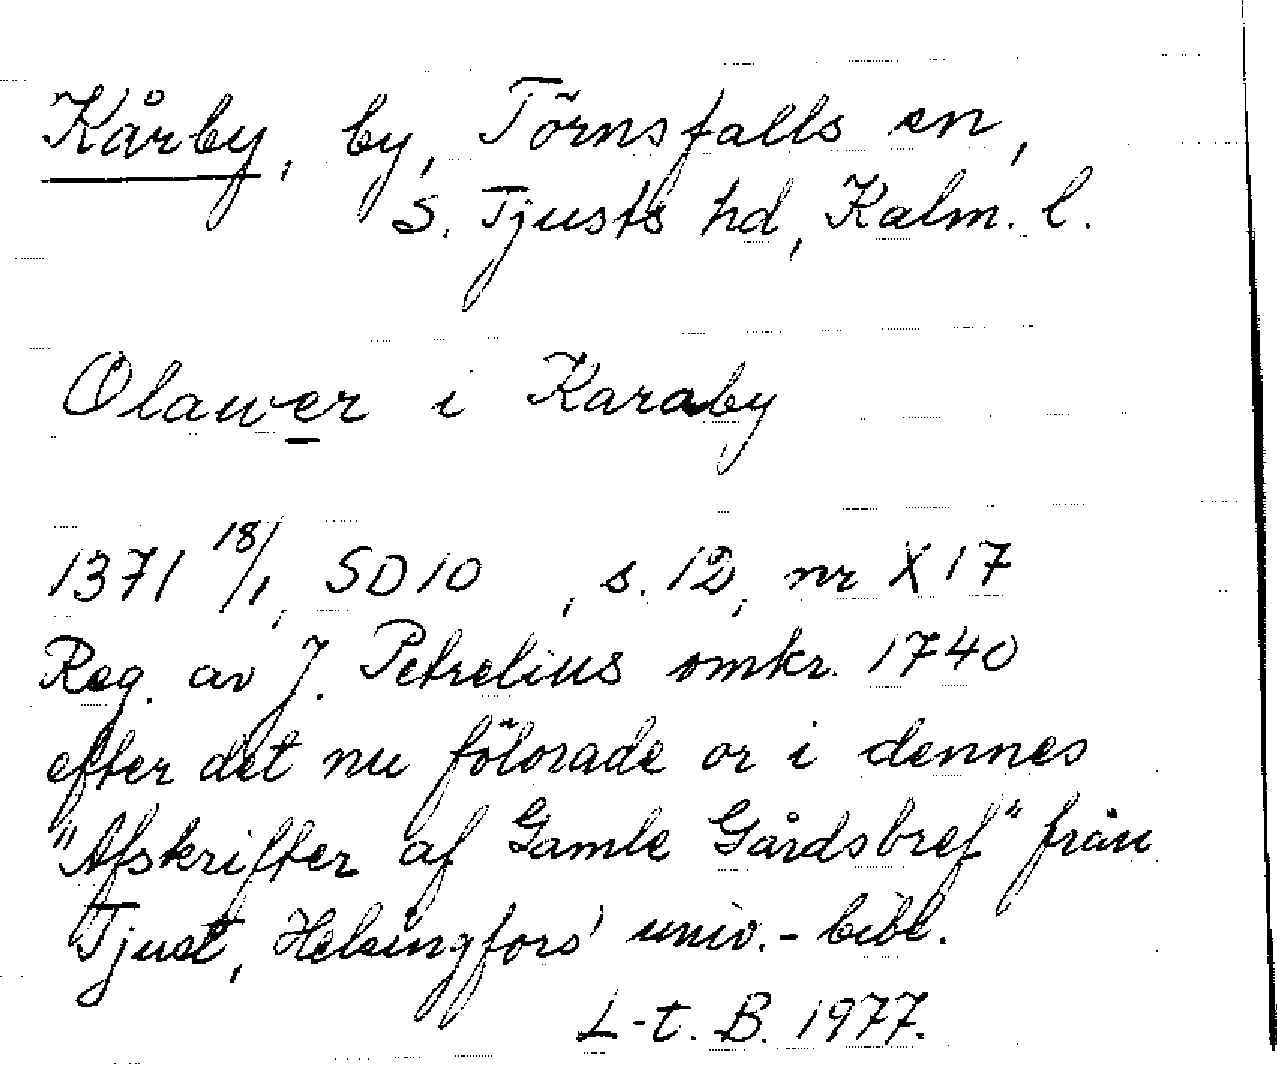 Kårby, by, Törnsfalls sn,
S. Tjusts hd, Kalm. l.
Olawer i Karaby
1371 18/1, SD 10, s. 12, nr X 17
Reg. av J. Petrelius omkr. 1740
efter det nu förlorade or i dennes
"Afskrifter af Gamle Gårdsbref" från
Tjust, Helsingfors' univ.-bibl.
L-t. B. 1977.